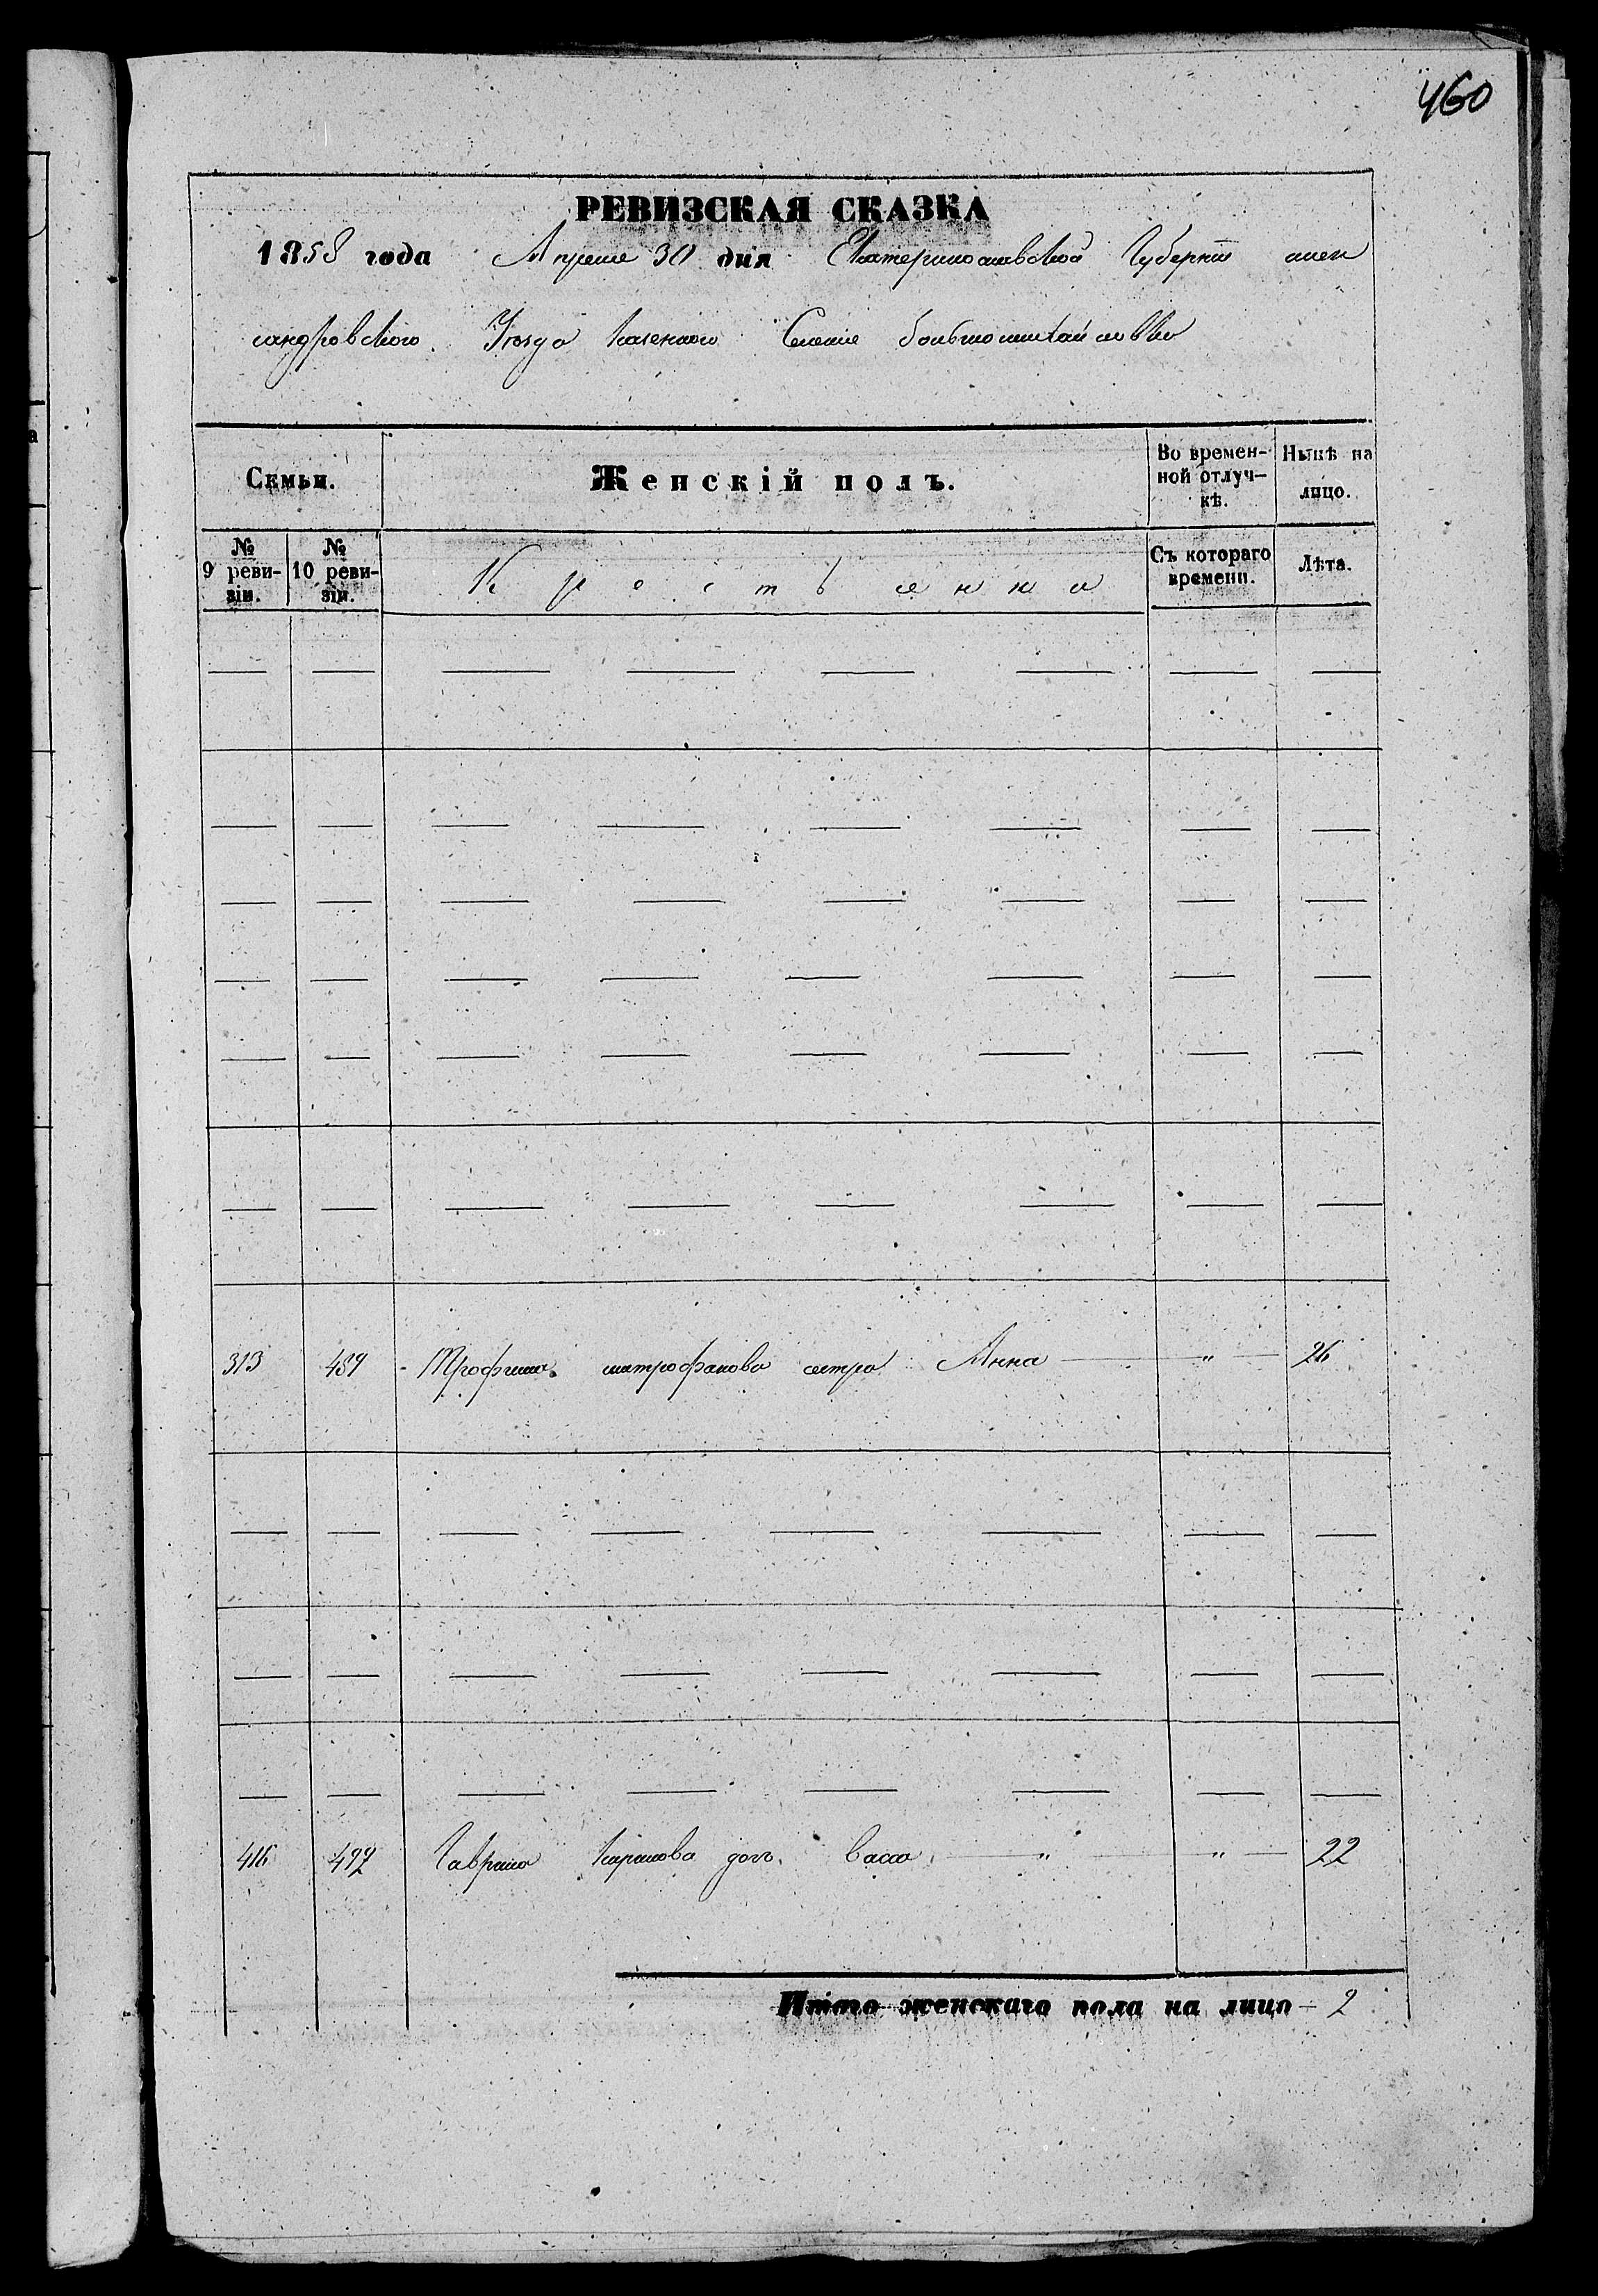 460
РЕВИЗСКАЯ СКАЗКА
1858 года Апреля 30 дня Екатеринославской Губернии алек
сандровского Уезда казенного Селение большомихайловки
Семьи. Женскій полъ. Во времен-
ной отлуч-
кѣ. Нынѣ на
лицо.
№
9 реви-
зіи. №
10 реви-
зіи. Крестьенки Съ котораго
времени. Лѣта.
313 489 Трофима митрофанова сестра Анна " 26
416 497 Гаврила дочь васса " " 22
Итого женскаго пола на лицо 2